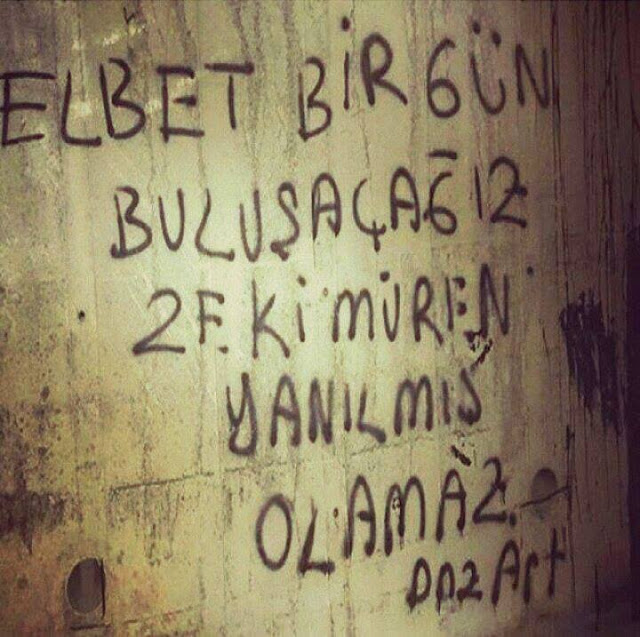 ELBET BİR GÜN
BULUŞAÇAĞIZ
ZEKİ MÜREN
YANILMIŞ
OLAMAZ.
DAZ Art